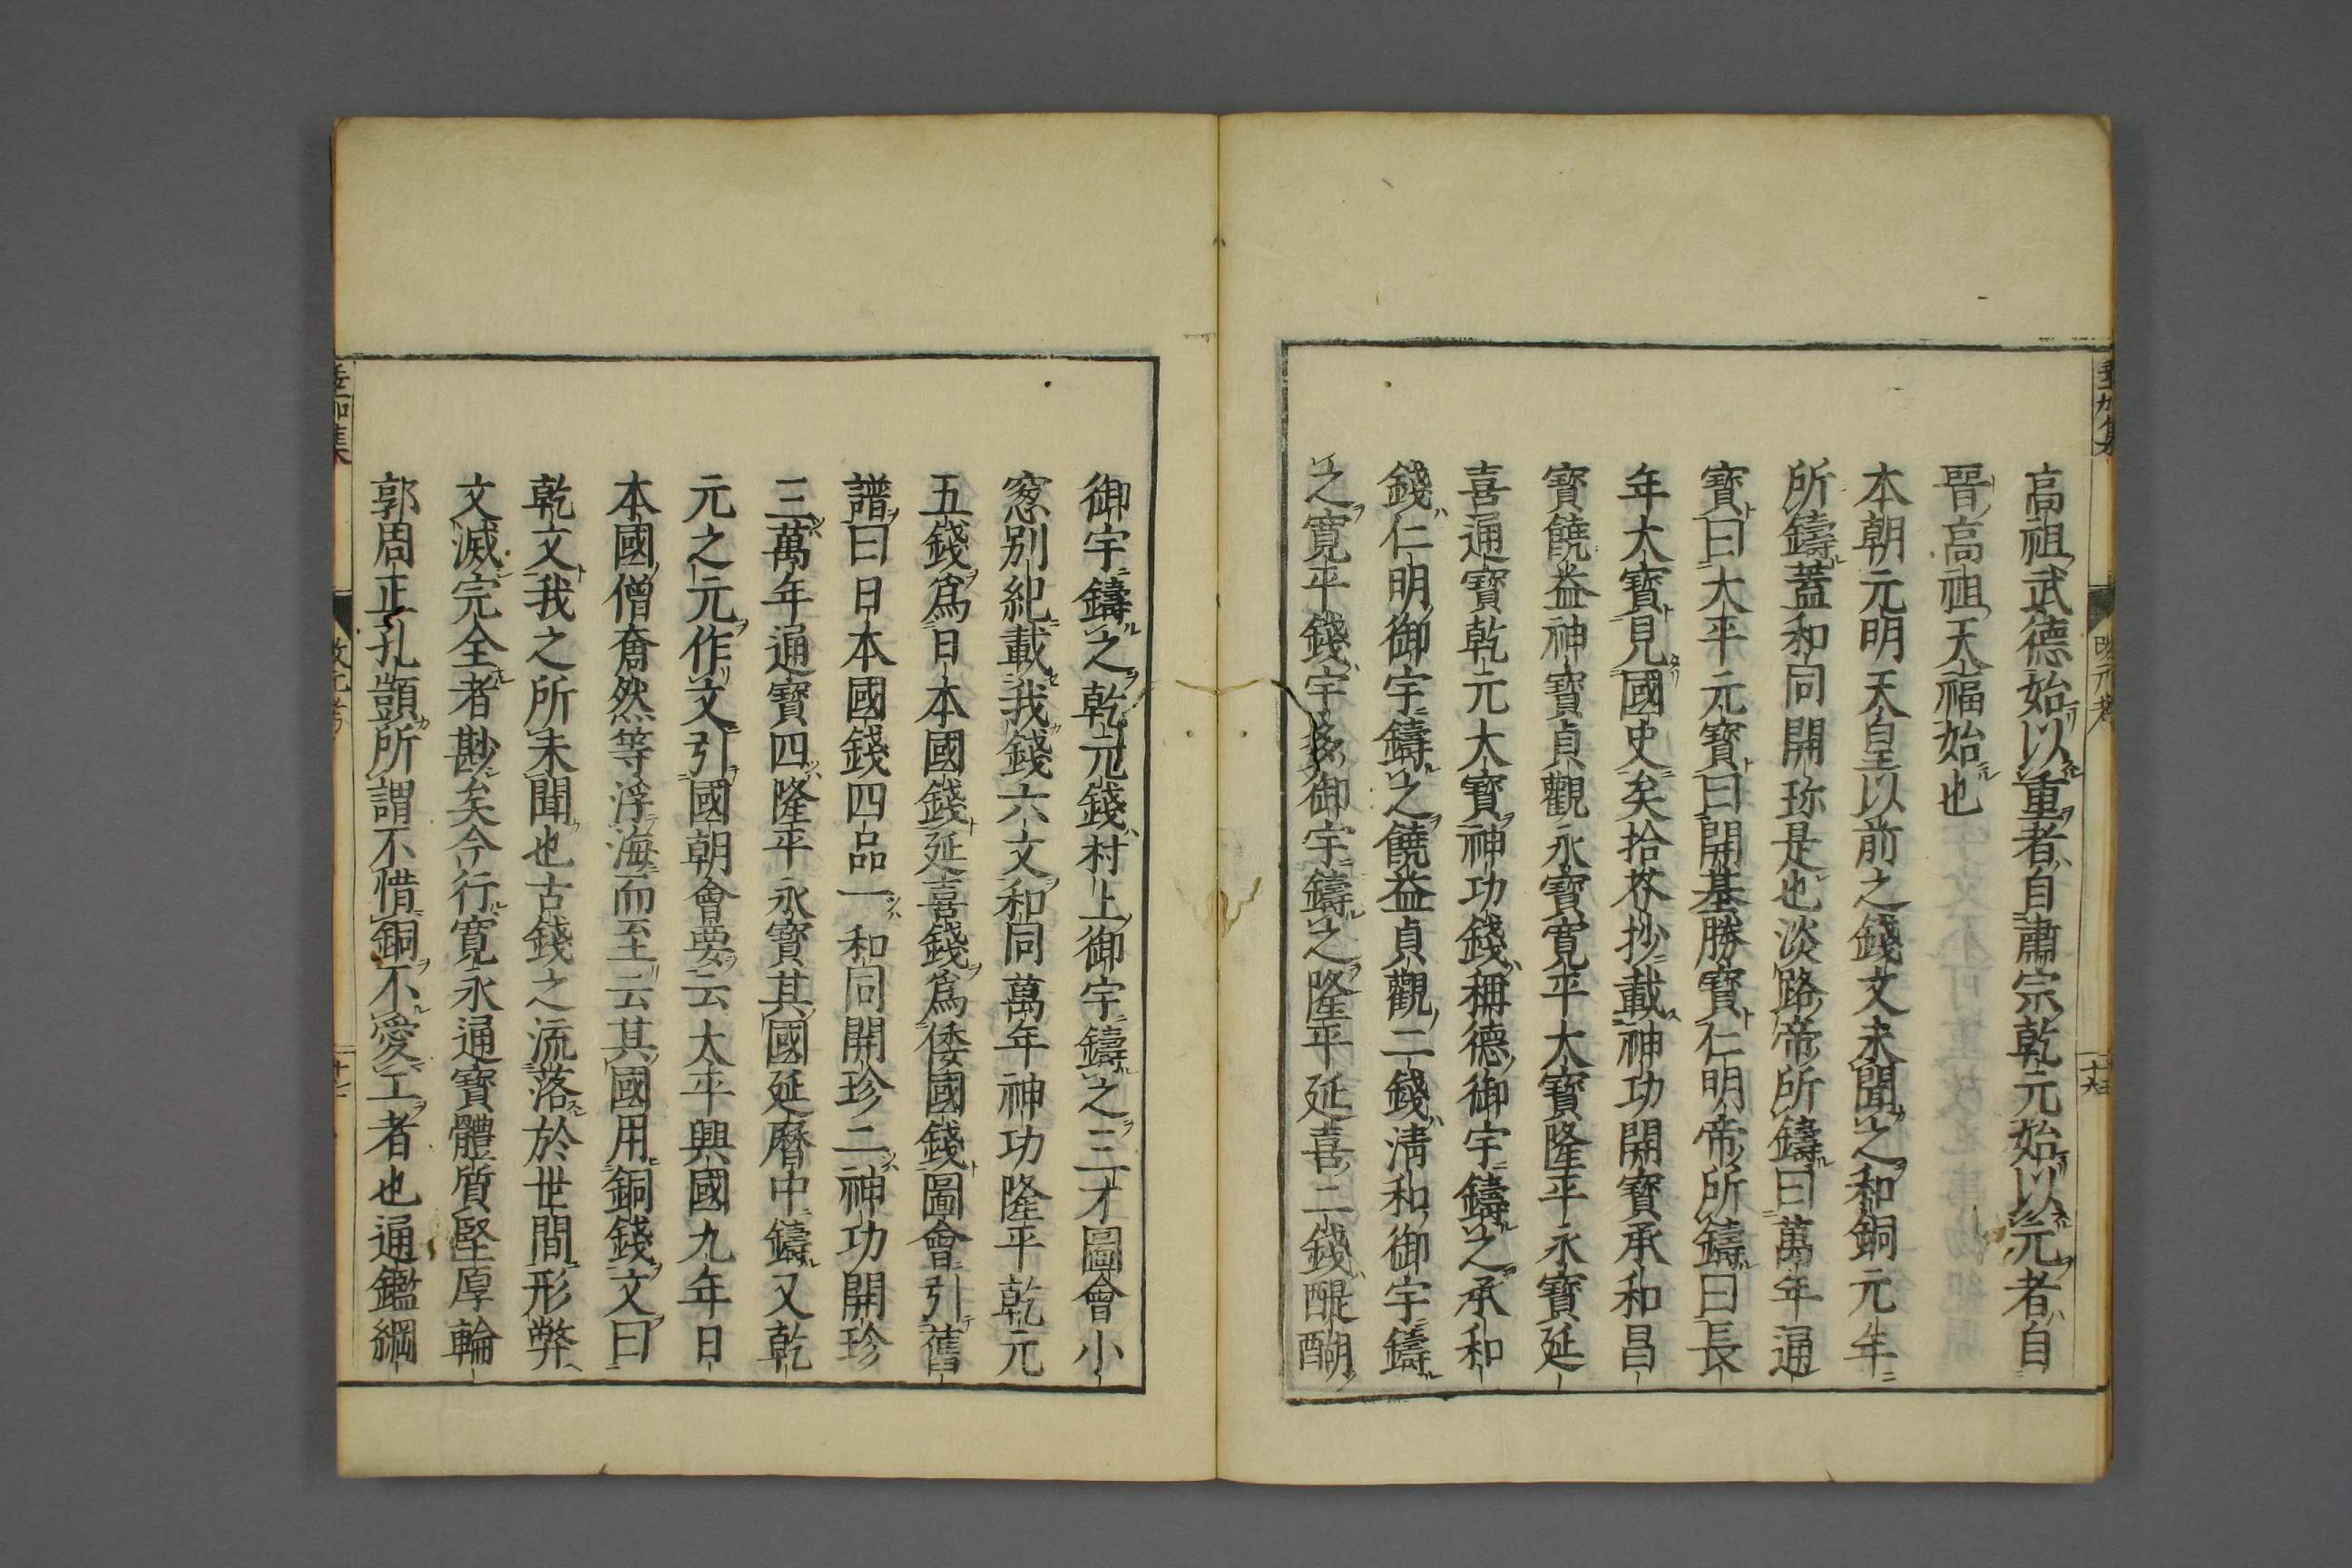 高祖武德始以重者自肅宗乾元始以元者自
晋高祖天福始也
本朝元明天皇以前之錢文未聞之和銅元年
所鑄蓋和同開珎是也淡路帝所鑄曰萬年通
寶曰大平元寶曰開基勝寶仁明帝所鑄曰長
年大寶見國史矣拾芥抄載神功開寶承和昌
寶饒益神寶貞觀永寶寛平大寶隆平永寶延
喜通寶乾元大寶神功錢稱德御宇鑄之承和
錢仁明御宇鑄之饒益貞觀二錢淸和御宇鑄
之寛平錢宇多御宇鑄之隆平延喜二錢醍醐
御宇鑄之乾元錢村上御宇鑄之三才圖會小
窓別紀載我錢六文和同萬年神功隆平乾元
五錢爲日本國錢延喜錢爲倭國錢圖會引舊
譜曰日本國錢四品一和同開珍二神功開珍
三萬年通寶四隆平永寶其國延曆中鑄又乾
元之元作文引國朝會要云太平興國九年日
本國僧奝然等浮海而至云其國用銅錢文曰
乾文我之所未聞也古錢之流落於世間形弊
文滅完全者尠矣今行寛永通寶體質堅厚輪
郭周正孔顗所謂不惜銅不愛工者也通鑑綱
垂加集
改元考
十六
垂加集
改元考
十七